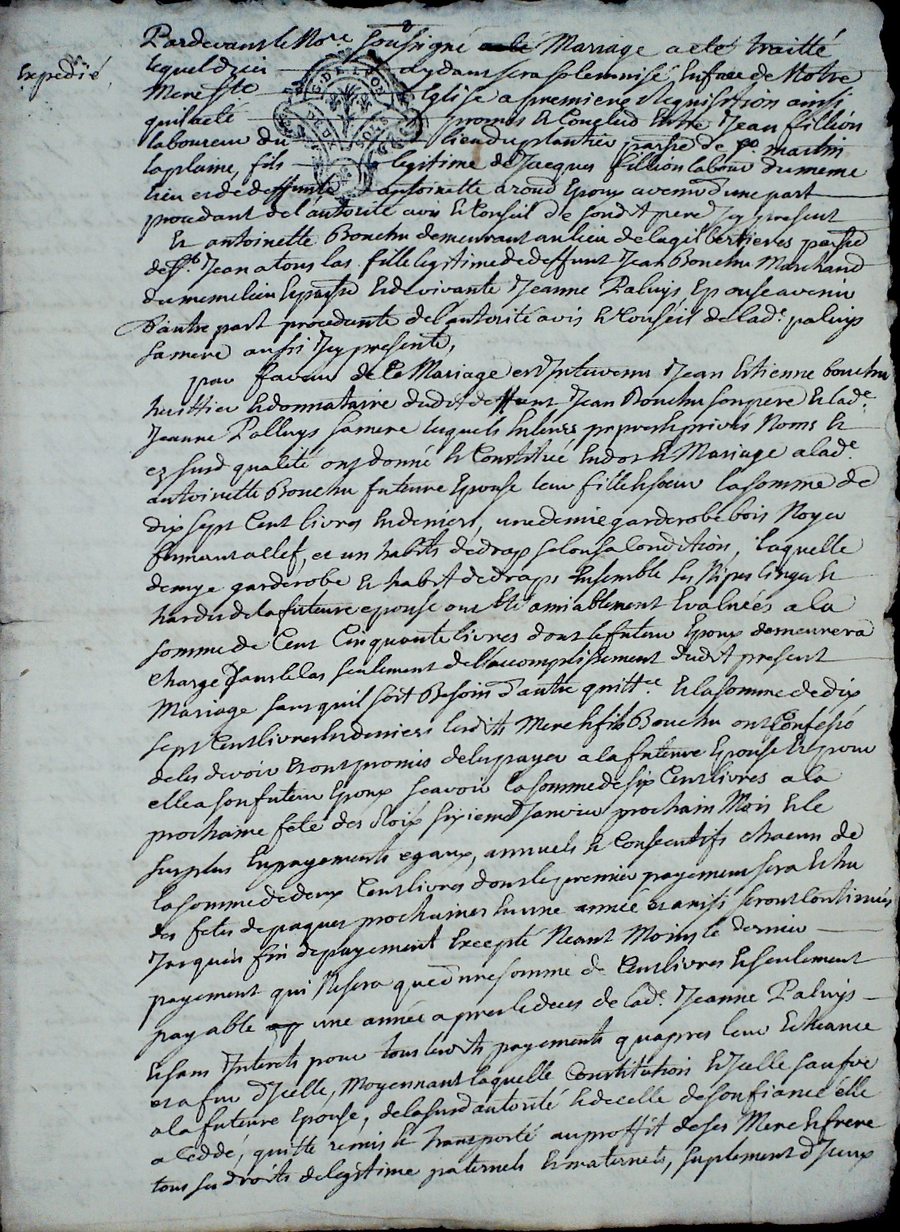 Pardevant le No.re sousigné a eté Mariage a eté traitté
Expedié
lequel Dieu aydant sera solemnisé En face de Notre
Mere Ste Eglise a premiere Requisition ainsi
quil a eté promis et Conclud Entre Jean fillion
laboureur du lieu du plantier parsse de St martin
laplaine, fils legitime de Jacques fillion labour. du meme
lieu et de deffunte antoinette Epoux avenir d'une part
procedant de l'autorité avis et Conseil de son dit pere Jcy present
Et antoinette Bonchu demeurant au lieu de la gilbertieres parsse
de St Jean a touslas fille legitime de deffunt Jean Bonchu Marchand
du meme lieu et parsse Et de vivante Jeanne Paluys Epouse avenir
D'autre part procedante de l'autorité avis et Conseil de lade. paluys
sa mere aussi Jcy presente,
pour faveur de Ce Mariage est Jntervenu Jean Etienne bonchu
heritier et donnataire dudit deffunt Jean Bonchu son pere et lade.
Jeanne Palluys sa mere lesquels En leurs propres et privés Noms et
es susd qualité ont donné et Constitué En dot et Mariage a lade.
antoinette Bonchu future Epouse leur fille et sœur la somme de
dix sept Cent livres En deniers, une demie garderobe bois Noyer
fermant a clef, et un habits de drap selon sa Condition, laquelle
demye garderobe et habit de draps Ensemble les Nipes linges et
hardes de la future epouse ont Eté amiablement Evaluées a la
somme de Cent Cinquante livres dont le futeur Epoux demeurera
Chargé Dans le Cas seulement de l'accomplissement dudit present
Mariage sans quil soit Besoin d'autre quitt.ce Et la somme de dix
sept Cent livres En deniers lesdits Mere et fils Bonchu ont Confessé
de les devoir Et ont promis de les payer a la future Epouse Et pour
elle a son futeur Epoux scavoir la somme de six Cent livres a la
prochaine fete des Roix sixieme Janvier prochain Mois Et le
surplus En payements egaux, annuels et Consecutifs chacun de
la somme de deux Cent livres dont le premier payement sera Echu
des fetes de paques prochaines En une année et ainsi seront Continués
Jusqu'en fin de payement Excepté Neant Moins le dernier
payement qui Ne sera que d'une somme de Cent livres Et seulement
payable une année apres le deces de lade. Jeanne Paluys
Et sans Jnterets pour tous lesdits payements qu'apres leur Echeance
et a fur d'Jcelle, Moyennant laquelle Constitution Et Jcelle sauve
a la future Epouse, de la susd autorité Et de celle de son fiancé elle
a Ceddé, quitté remis et transporté au proffit de ses Mere et frere
tous ses droits de legitime paternels Et maternels, suplement d'Jceux